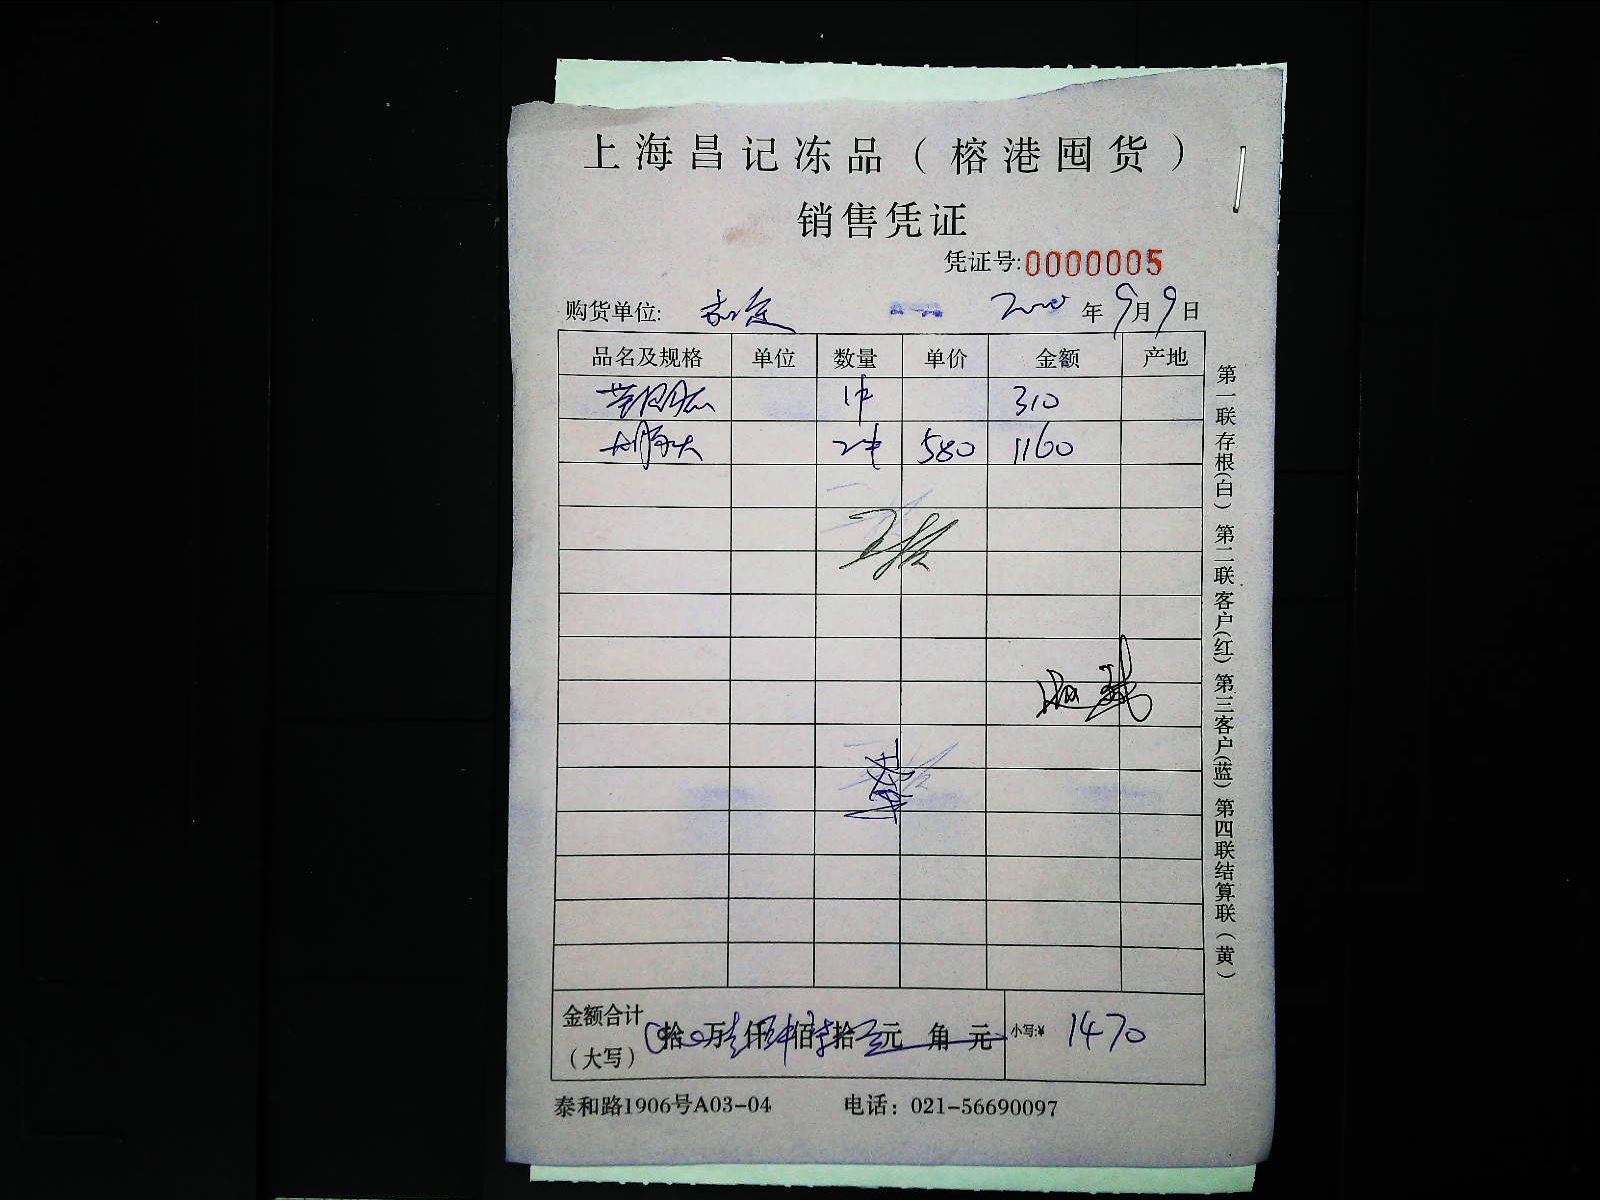 上海昌记冻品（榕港囤货）
销售凭证
凭证号:0000005
购货单位: 嘉定 年9月9日
品名及规格 单位 数量 单价 金额 产地
1件 310
2件 580 1160
金额合计
（大写） 拾 万 仟 佰 拾 元 角 元 小写:¥ 1470
泰和路1906号A03-04 电话：021-56690097
第一联存根(白) 第二联客户(红) 第三客户(蓝) 第四联结算联(黄)